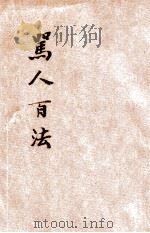 駡人百法
mtoou.info